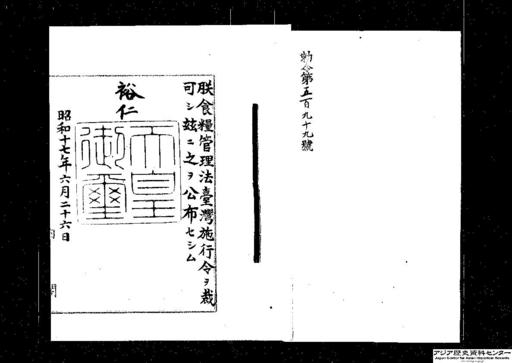 勅令第五百九十九號
朕食糧管理法臺灣施行令ヲ裁
可シ茲ニ之ヲ公布セシム
裕仁
天皇
御璽
昭和十七年六月二十六日
内
閣
アジア歴史資料センター
Japan Center for Asian Historical Records